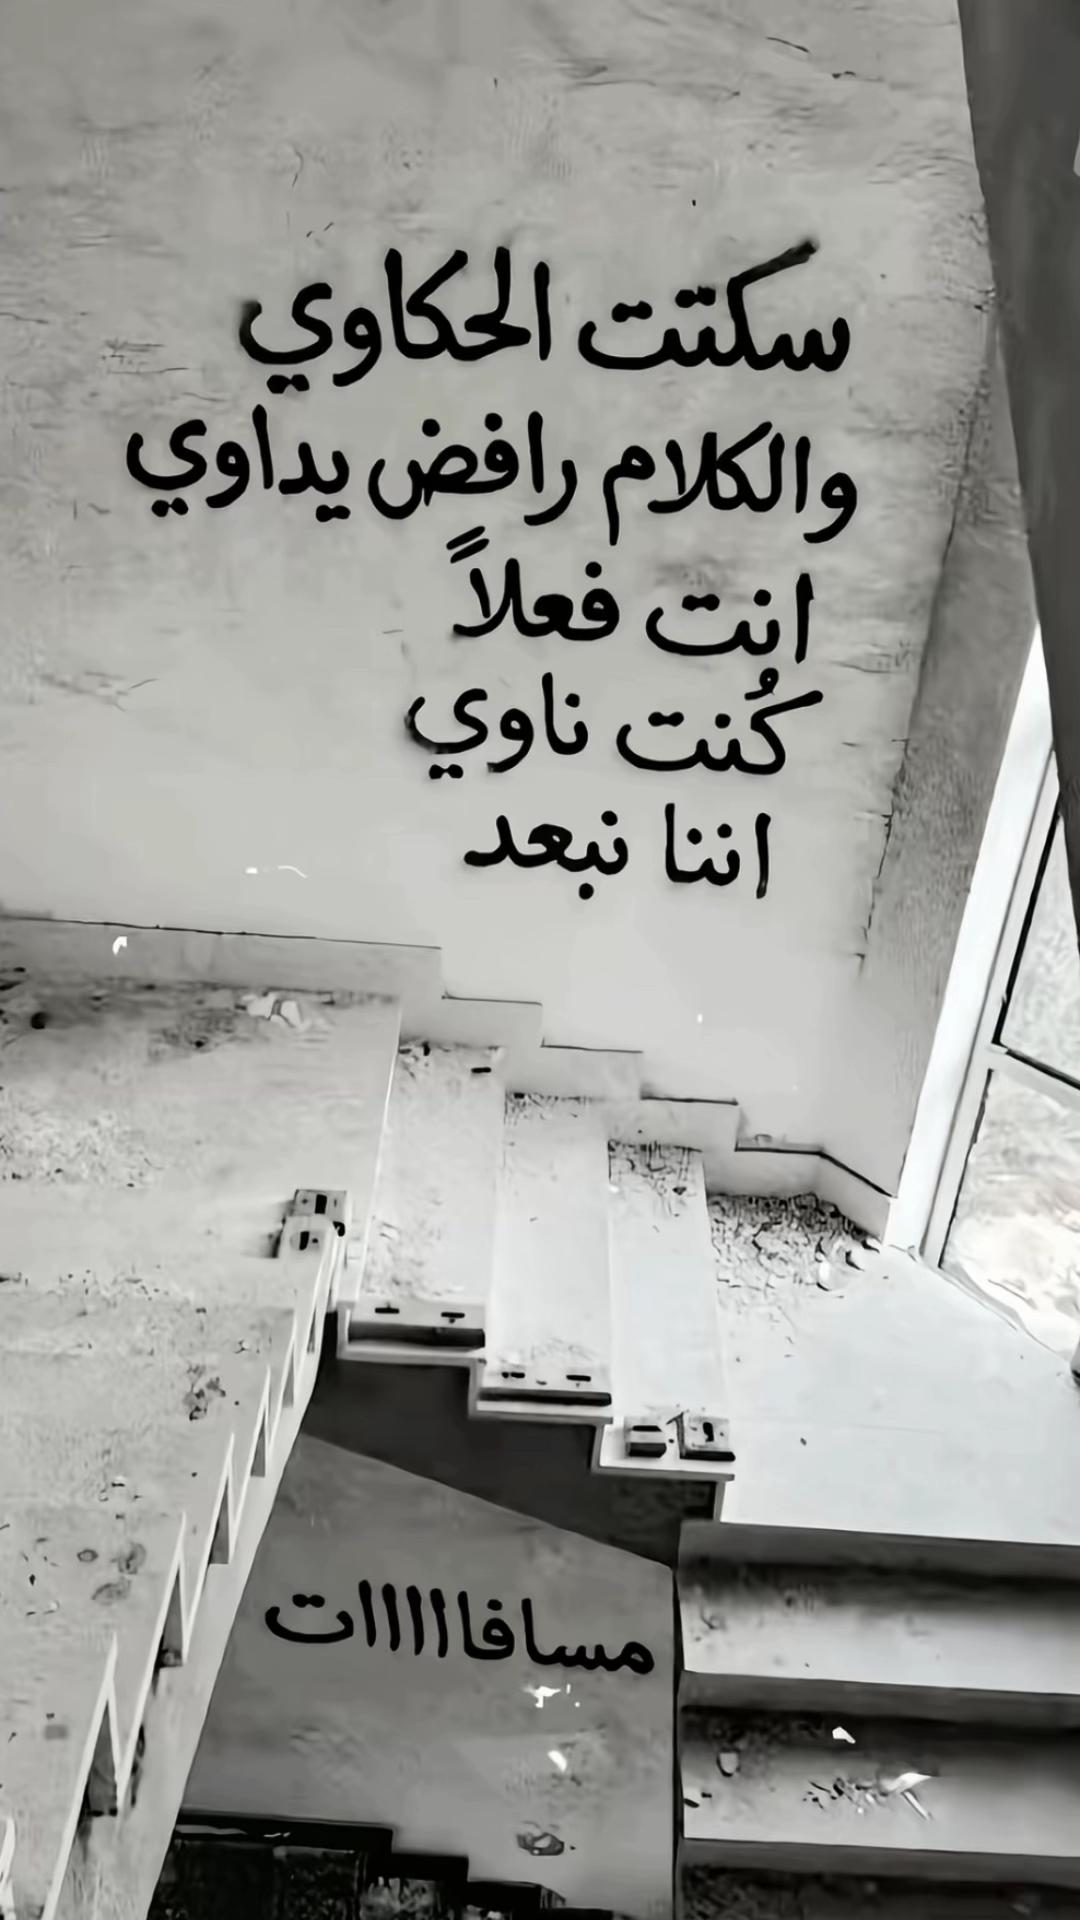 سكتت الحكاوي
والكلام رافض يداوي
انت فعلاً
كُنت ناوي
اننا نبعد
مسافاااااات